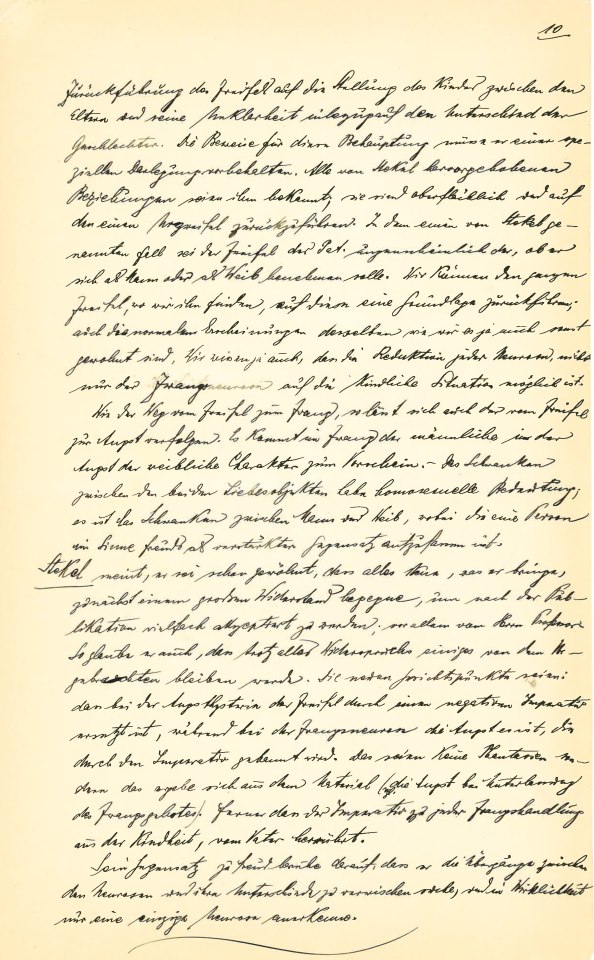 10
Zurückführung des Zweifels auf die Stellung des Kindes zwischen den
Eltern und seine Unklarheit in bezug auf den Unterschied der
Geschlechter. Die Beweise für diese Behauptung müsse er einer spe-
ziellen Darlegung vorbehalten. Alle von Stekel hervorgehobenen
Beziehungen seien ihm bekannt; sie sind oberflächlich und auf
den einen Urzweifel zurückzuführen. In dem einen von Stekel ge-
nannten Fall sei der Zweifel der Pat. augenscheinlich der, ob er
sich als Mann oder als Weib benehmen solle. Wir können den ganzen
Zweifel, wo wir ihn finden, auf diese eine Grundlage zurückführen;
auch die normalen Erscheinungen desselben wie wir es ja auch sonst
gewohnt sind. Wir wissen ja auch, dass die Reduktion jeder Neurose, nicht
nur der Zwangsneurose auf die kindliche Situation möglich ist.
Wie der Weg vom Zweifel zum Zwang, so lässt sich auch der vom Zweifel
zur Angst verfolgen. Es kommt im Zwang der männliche, in der
Angst der weibliche Charakter zum Vorschein. – Das Schwanken
zwischen den beiden Liebesobjekten habe homosexuelle Bedeutung;
es ist das Schwanken zwischen Mann und Weib, wobei die eine Person
im Sinne Freuds als verstärkter Gegensatz aufzufassen ist.
Stekel meint, er sei schon gewöhnt, dass alles Neue, was er bringe,
zunächst einem grossen Widerstand begegne, um nach der Pub-
likation vielfach akzeptiert zu werden; vor allem vom Herrn Professor.
So glaube er auch, dass trotz alles Widerspruches einiges von dem Vor-
gebrachten bleiben werde. Die neuen Gesichtspunkte seien:
dass bei der Angsthysterie der Zweifel durch einen negativen Imperativ
ersetzt ist, während bei der Zwangsneurose die Angst es ist, die
durch den Imperativ gebannt wird. Das seien keine Phantasien son-
dern das ergebe sich aus dem Material (die Angst bei Unterlassung
des Zwangsgebotes). Ferner dass der Imperativ zu jeder Zwangshandlung
aus der Kindheit, vom Vater herrührt.
Sein Gegensatz zu Freud beruhe darauf, dass er die Übergänge zwischen
den Neurosen und ihre Unterschiede zu verwischen suche, und in Wirklichkeit
nur eine einzige Neurose anerkenne.